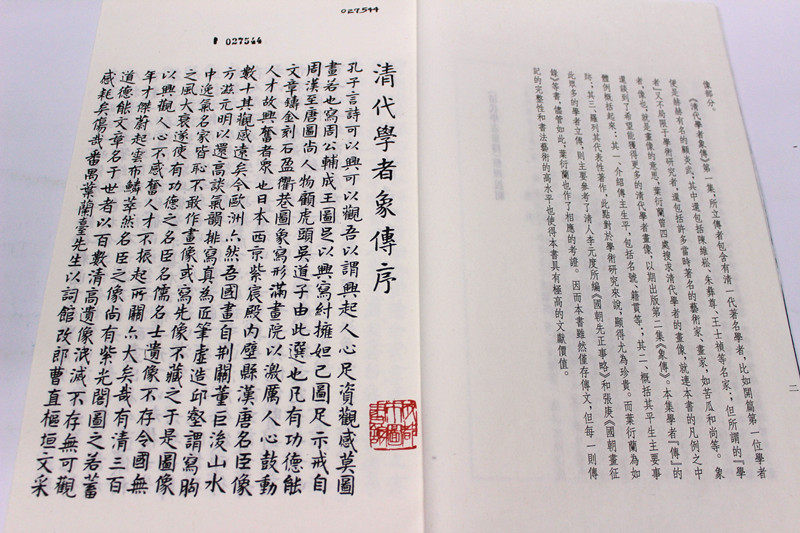 二
像部分。
《清代學者象傳》第一集，所立傳者包含有清一代著名學者，比如開篇第一位學者
便是赫赫有名的顧炎武，其中還包括陳維崧、朱彝尊、王士禎等名家；但所謂的『學
者』又不局限于學術研究者，還包括許多當時著名的藝術家、畫家，如苦瓜和尚等。象
者，像也，就是畫像的意思，葉衍蘭曾四處搜求清代學者的畫像，就連本書的凡例之中
還談到了希望能獲得更多的清代學者畫像，以期出版第二集《象傳》。本集學者『傳』的
體例概括起來：其一、介紹傳主生平，包括名號、籍貫等；其二、概括其平生主要事
跡；其三、羅列其代表性著作，此點對於學術研究來說，顯得尤為珍貴。而葉衍蘭為如
此眾多的學者立傳，則主要參考了清人李元度所編《國朝先正事略》和張庚《國朝畫征
錄》等書，儘管如此，葉衍蘭也作了相應的考證。因而本書雖然僅存傳文，但每一則傳
記的完整性和書法藝術的高水平也使得本書具有極高的文獻價值。
027544
027544
清代學者象傳序
孔子言詩可以興可以觀吾以謂興起人心足資觀感莫圖
畫若也寫周公輔成王圖足以興寫紂擁妲己圖足示戒自
周漢至唐圖尚人物顧虎頭吳道子由此選也凡有功德能
文章鑄金刻石盈衢巷圖象寫形滿畫院以激厲人心鼓動
人才故興奮者衆也日本西京紫宸殿內壁縣漢唐名臣像
數十其觀感遠矣今歐洲亦然吾國畫自荊關董巨浚山水
方滋元明以還高談氣韻排寫真為匠筆虛造邱壑謂寫胸
中逸氣名家皆恥不敢作畫像或寫先像不藏之于是圖像
之風大衰遂使有功德之名臣名儒名士遺像不存令國無
以興觀人心不感奮人才不振起所關亦大矣哉有清三百
年才傑蔚起雲布鱗萃然名臣之像尚有紫光閣圖之若蓄
道德能文章名于世者以百數清高遺像泯滅不存無可觀
感耗矣傷哉番禺葉蘭臺先生以詞館改郎曹直樞垣文采